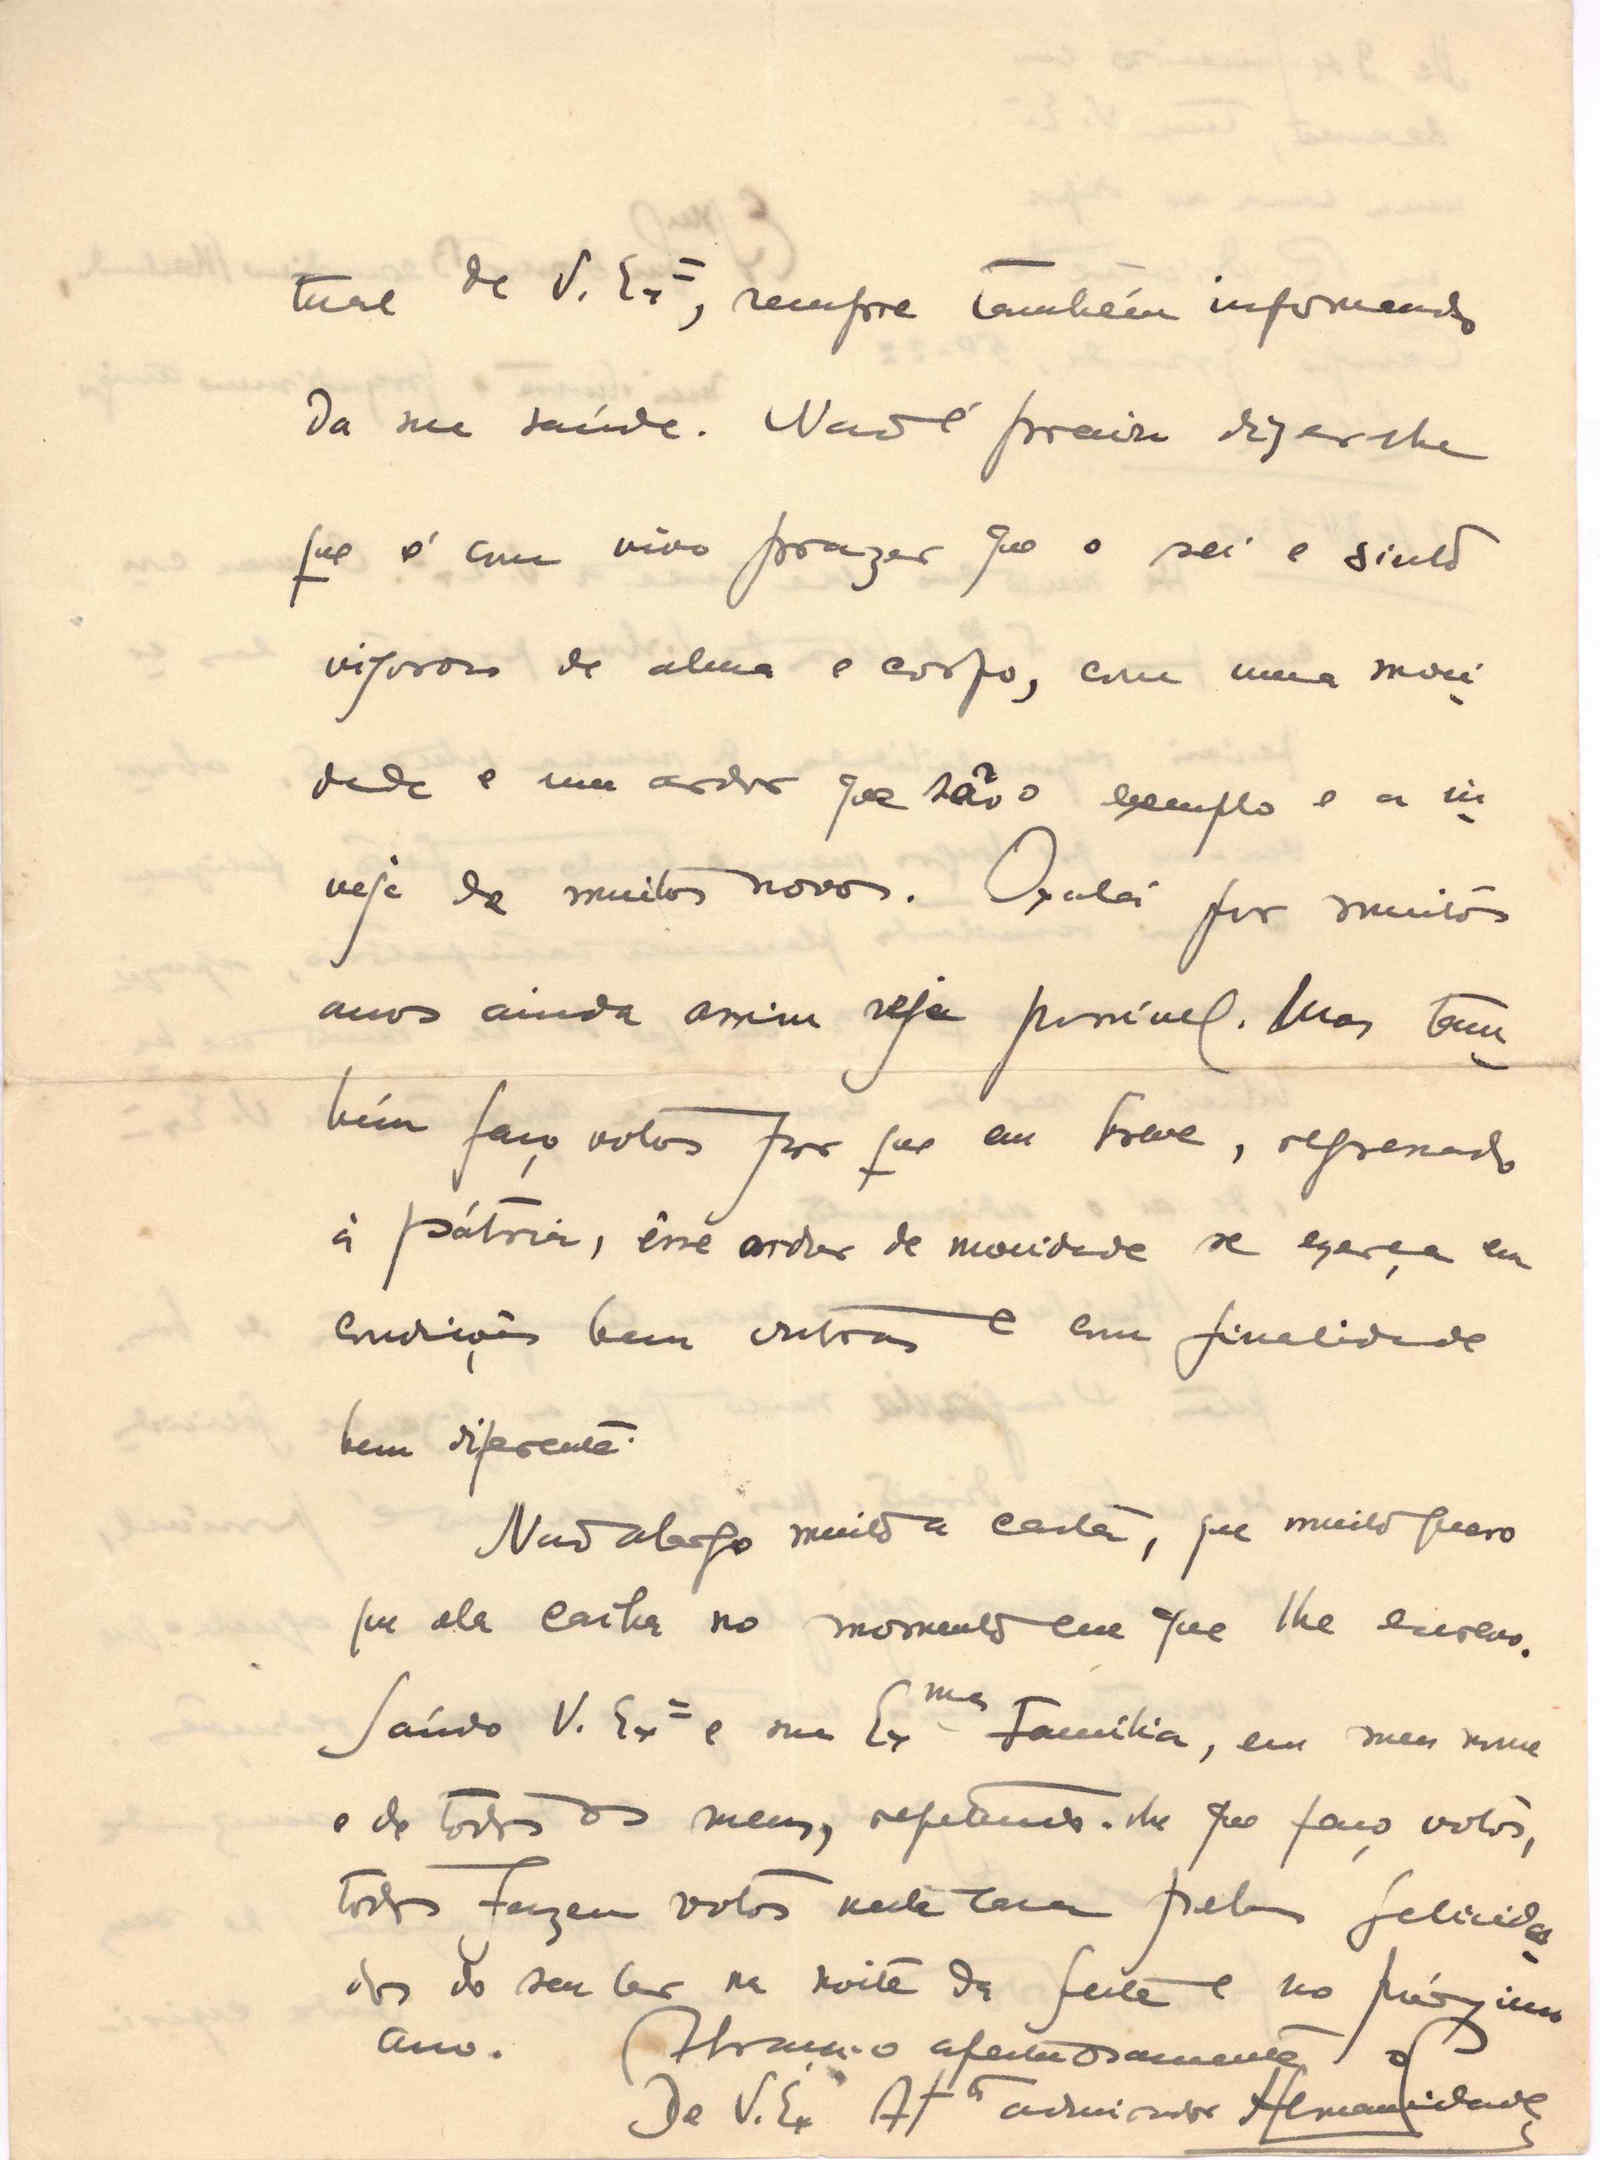 tual de V. Ex.ª, sempre também informando
da sua saúde. Não é preciso dizer-lhe
que é com vivo prazer que o sei e sinto
vigoroso de alma e corpo, com uma moci
dade e um ardor que são o exemplo e a in
veja de muitos novos. Oxalá por muitos
anos ainda assim seja possível. Mas tam
bém faço votos por que em breve, regressado
à pátria, êsse ardor de mocidade se exerça em
condições bem outras e com finalidade
bem diferente.
Não alargo muito a carta, que muito quero
que ela caiba no momento em que lhe escrevo.
Saúdo V. Ex.ª e sua Ex.ma Família, em meu nome
e de todos os meus, repetindo-lhe que faço votos,
todos fazem votos nesta casa pelas felicida
des do seu lar na noite da festa e no próximo
ano. Abraça-o afectuosamente o
De V. Ex.ª At.º admirador